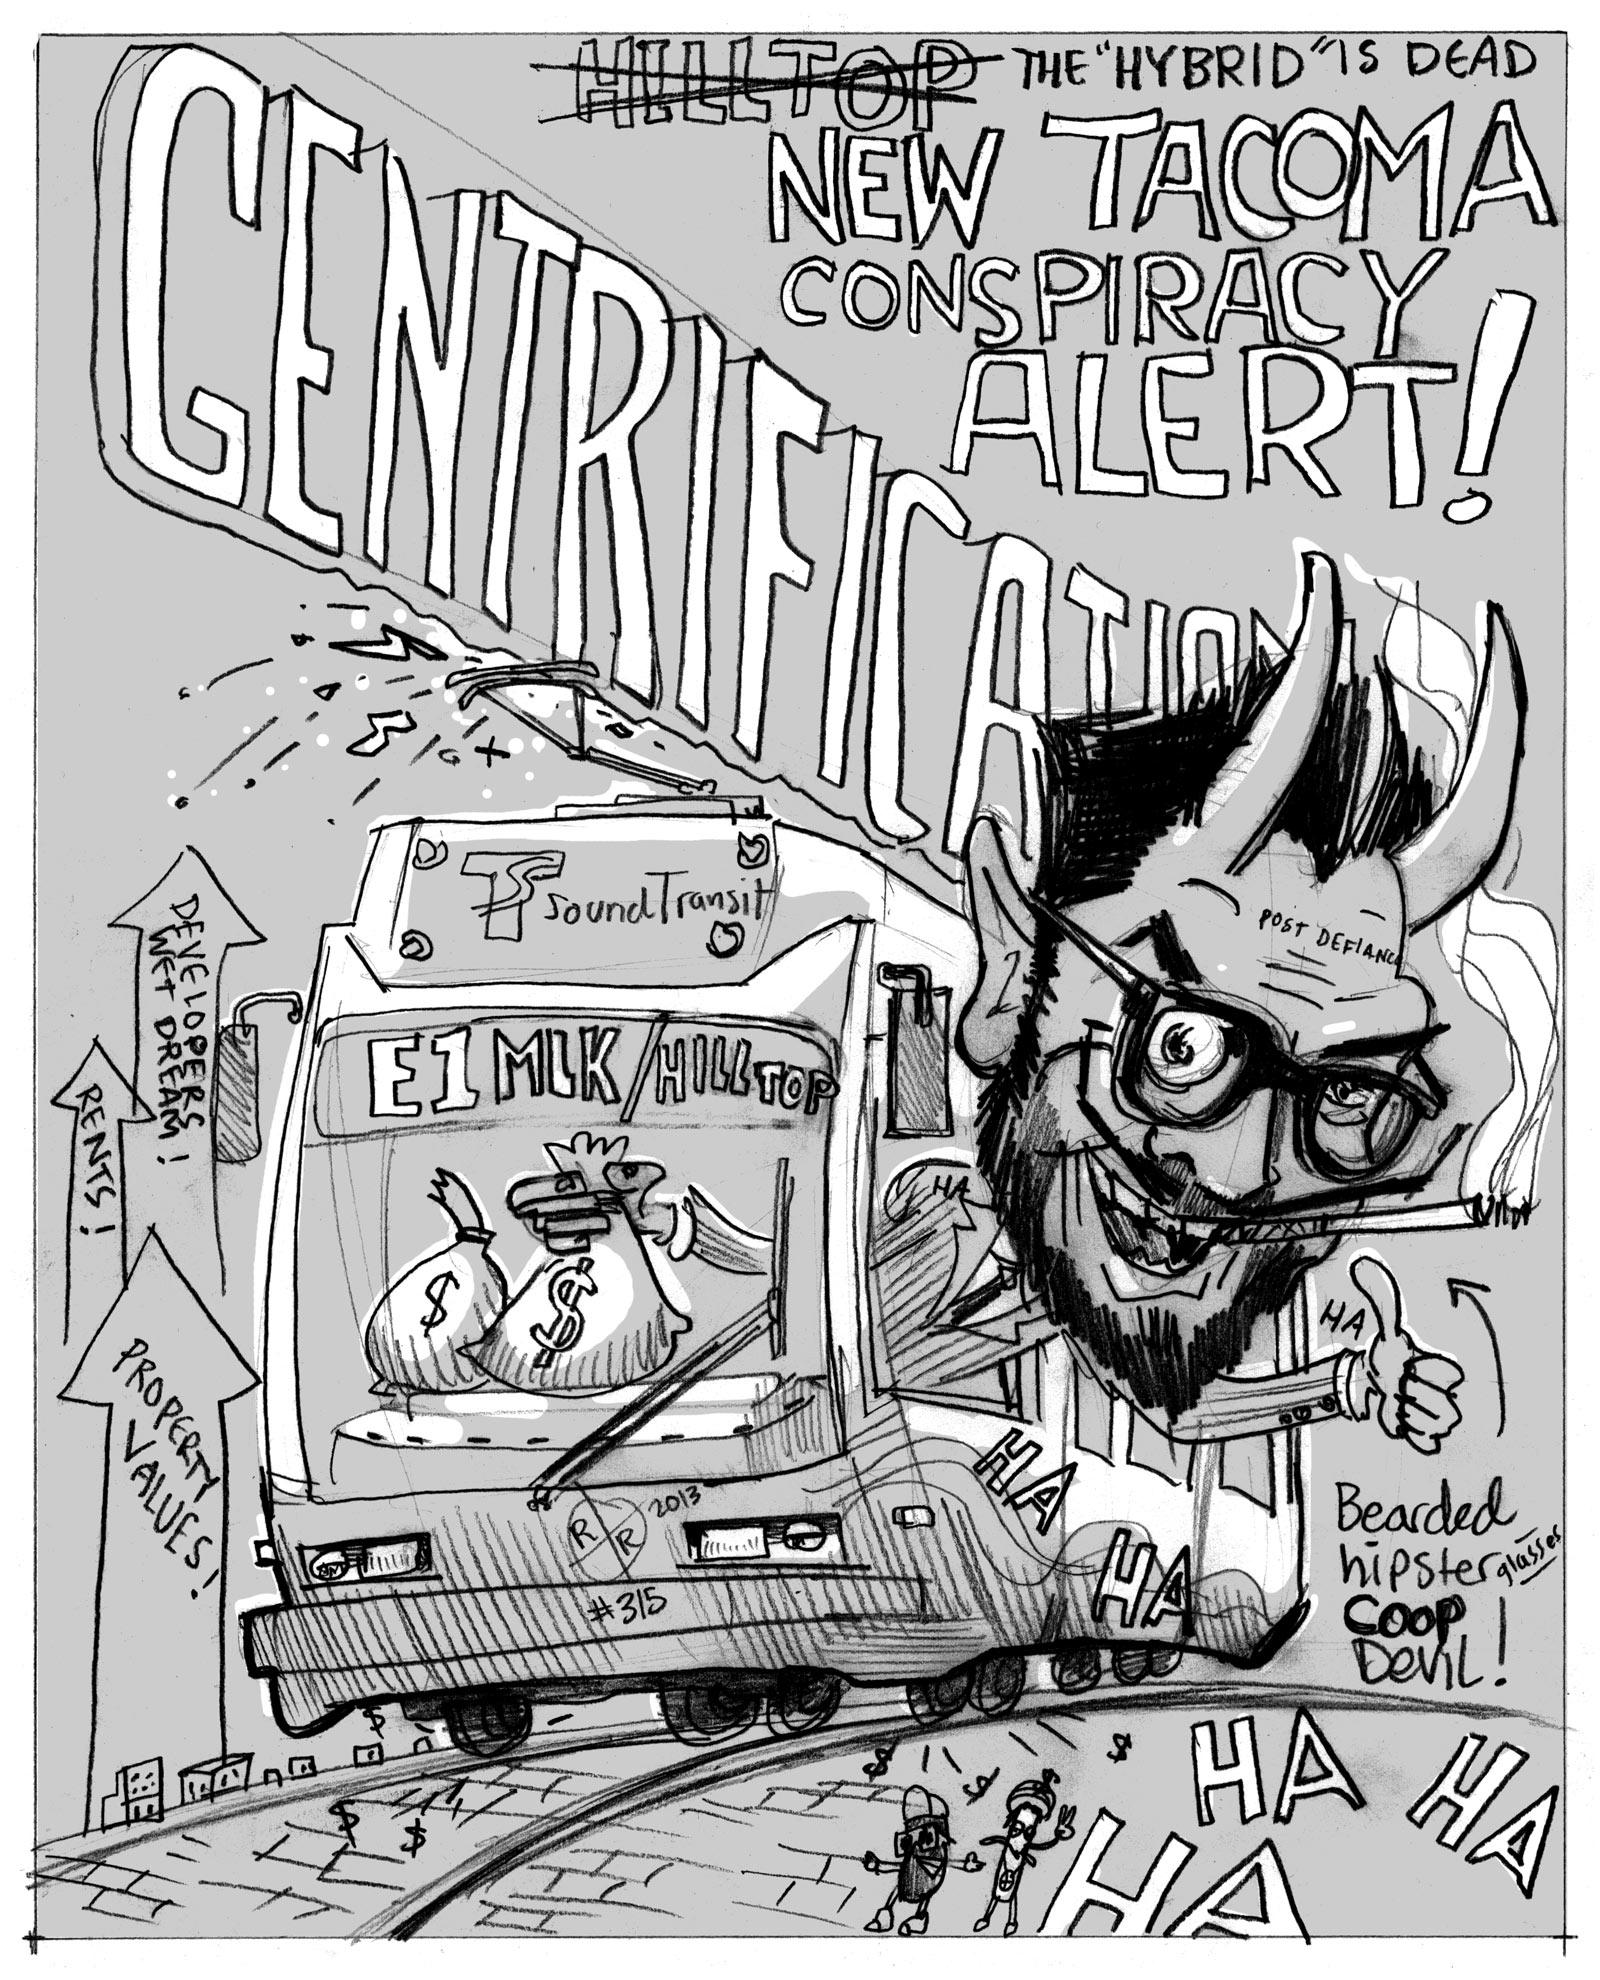 HILLTOP THE "HYBRID" IS DEAD
NEW TACOMA
CONSPIRACY
ALERT!
GENTRIFICATION
TS SoundTransit
POST DEFIANCE
E1 MLK/HILLTOP
DEVELOPERS
WET DREAM!
RENTS!
PROPERTY
VALUES!
$
$
HA
HA
HA
HA
Bearded
hipster glasses
COOP
DEVIL!
R R 2013
#315
$
$
$
$
$
$
HA HA
HA